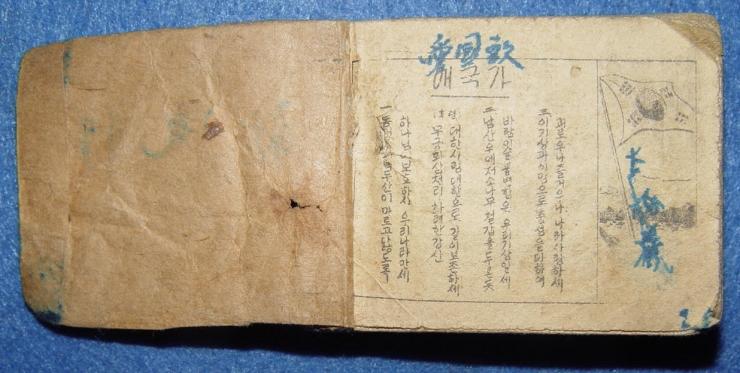 愛國歌
애국가
一 동해물과백두산이마르고닳도록
하나님이보호하사 우리나라만세
무궁화삼천리 화려한강산
대한사람대한으로 길이보존하세
二 남산우에저소나무 철갑을두른듯
바람이슬불변함은 우리기상일세
三 이기상과이맘으로 충성을다하여
괴로우나즐거우나 나라사랑하세